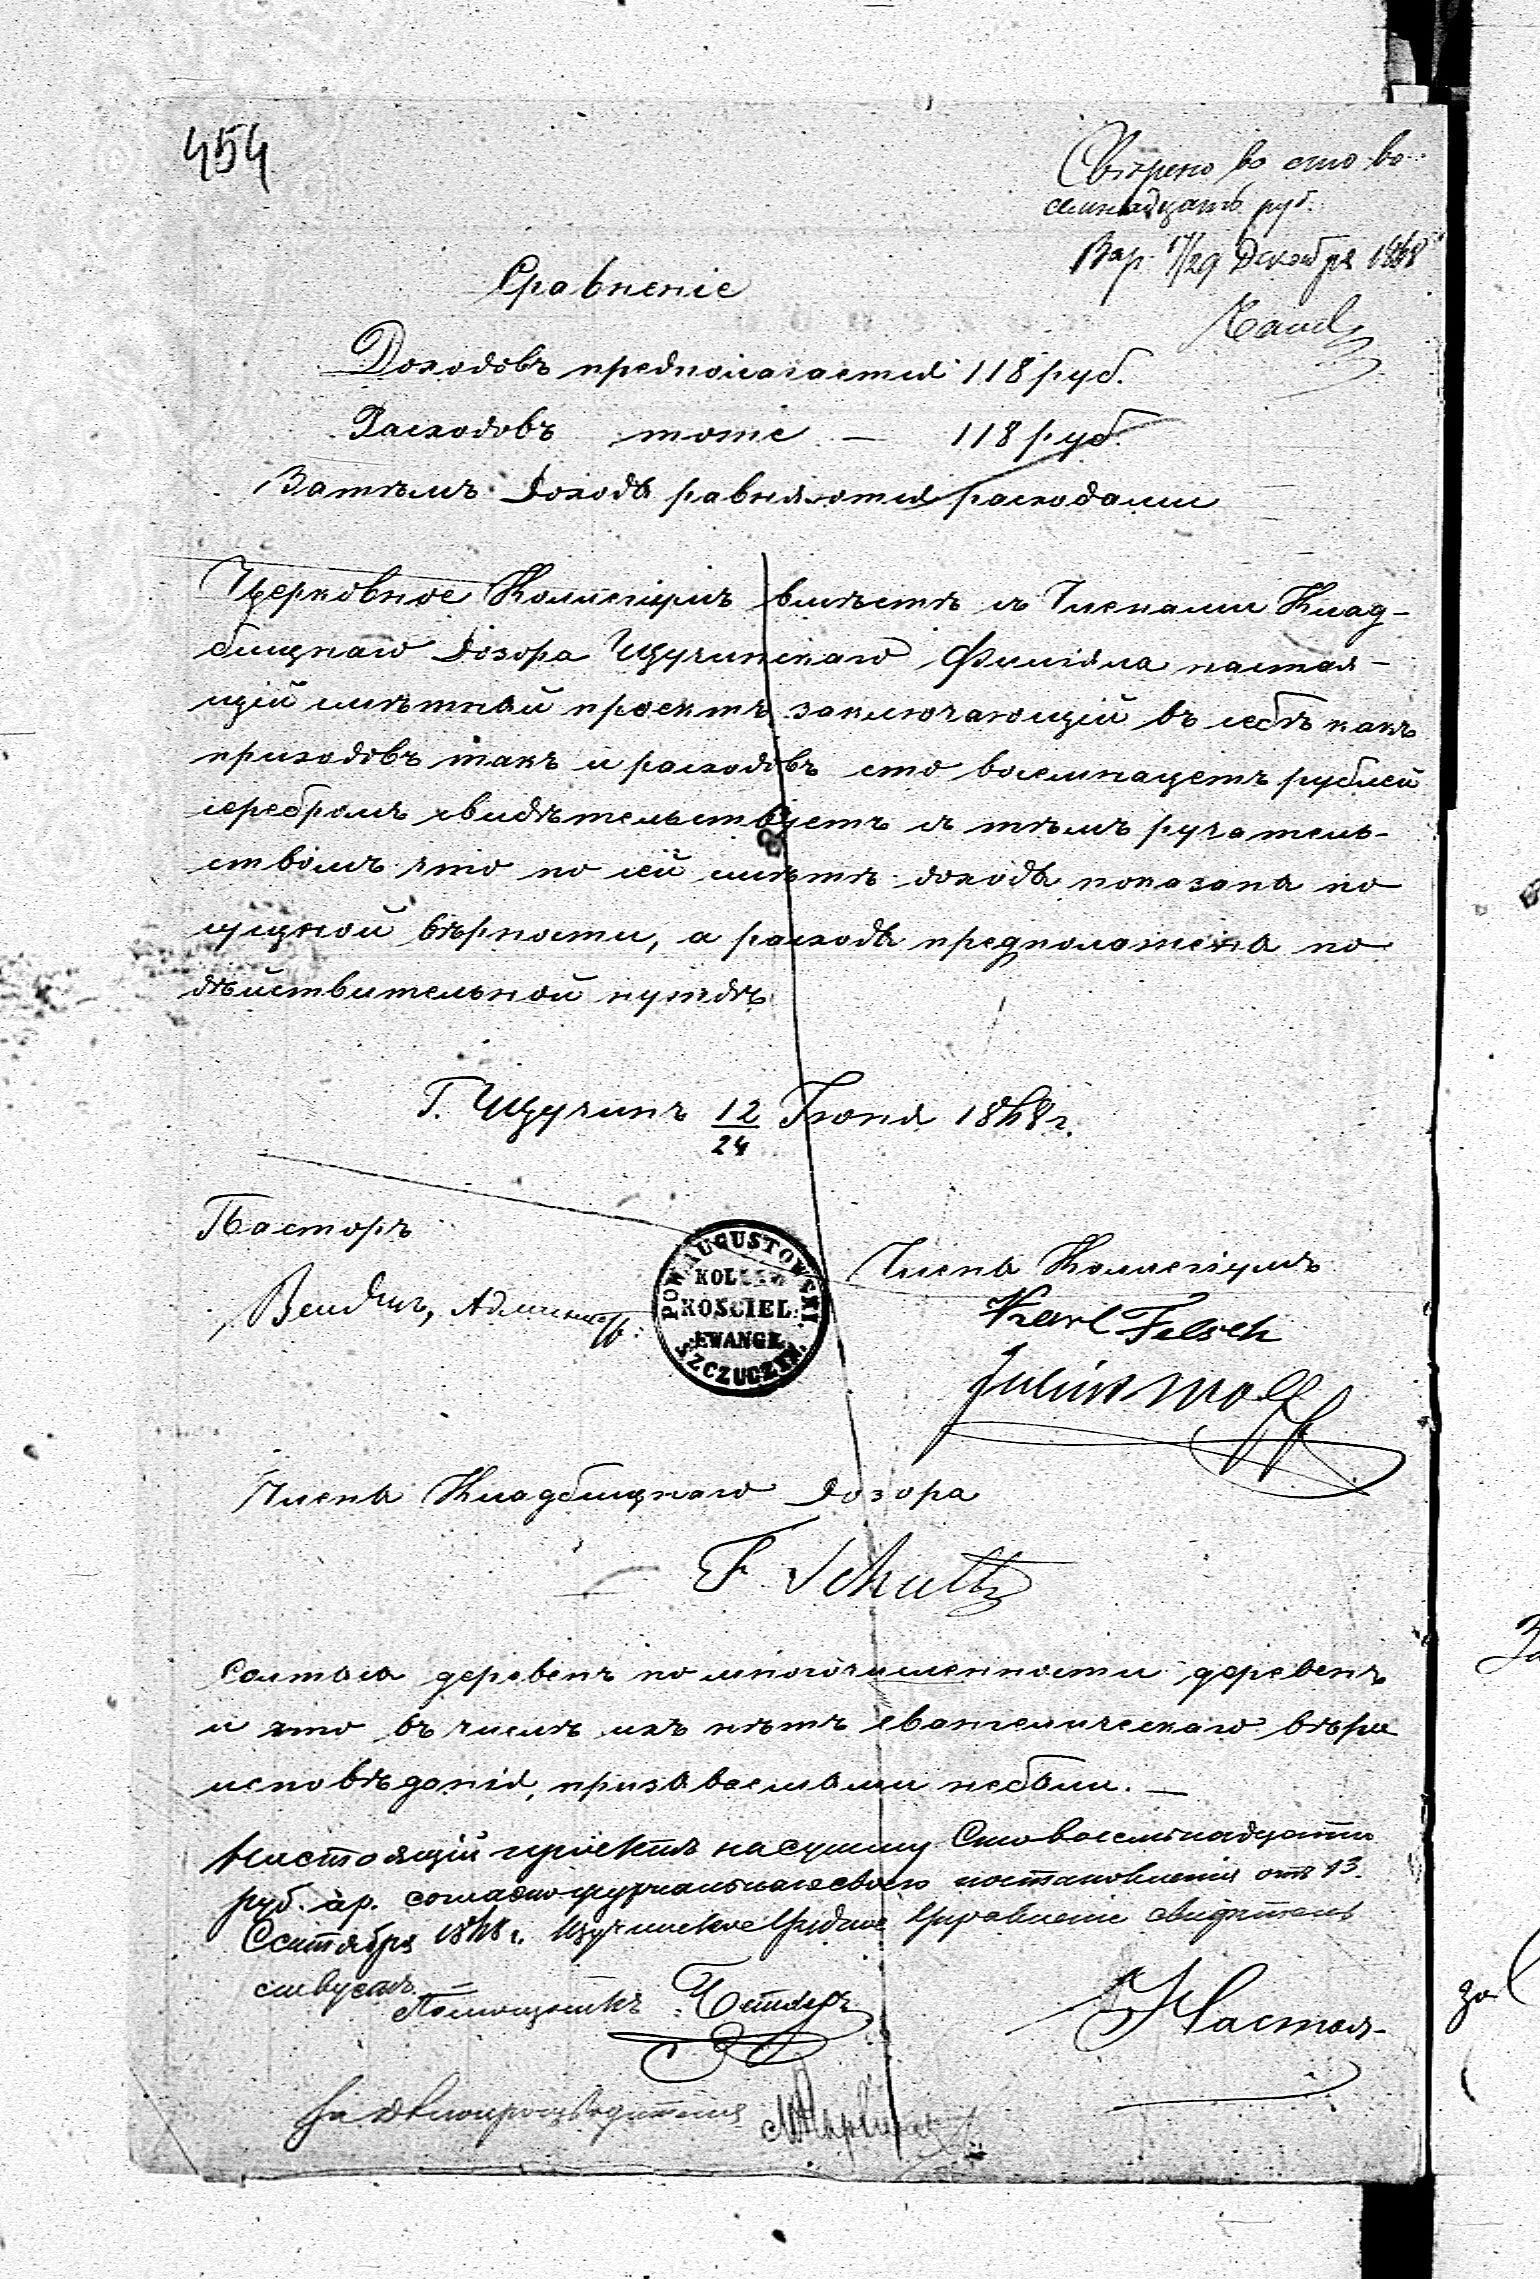 454
Свѣрено во сто во-
семнадцать руб.
Вар. 17/29 Декабря 1868
Сравненіе
Доходовъ предполагается 118 руб.
Расходовъ тоже — 118 руб.
Затѣмъ доходы равняются расходами
Церковное Коллегіумъ вмѣстѣ съ Членами Клад-
бищнаго Дозора Щучинскаго Филіяла настоя-
щій смѣтный проектъ заключающій въ себѣ какъ
приходовъ такъ и расходовъ сто восемнацеть рублей
серебромъ свидѣтельствуетъ съ тѣмъ ручатель-
ствомъ что по сей смѣтѣ доходы показаны по
сущной вѣрности, а расходы предположены по
дѣйствительной нуждѣ.
Г. Щучинъ 12/24 Іюня 1868 г.
Пасторъ
Члены Коллегіумъ
POW. AUGUSTOWSKI
KOLLEG
KOSCIEL:
EWANGE.
SZCZUCZYN.
Karl Felsch
Julius Moll
Члены Кладбищнаго Дозора
F. Schultz
Солтысы деревень по многочисленности деревень
и что въ числѣ ихъ нѣтъ евангелическаго вѣро
исповѣданія, призываемыми небыли. —
Настоящій проектъ на сумму Сто восемьнадцати
руб. ср. согласно журнальнаго своего постановленія отъ 13
Сентября 1868 г. Щучинское Уѣздное Управленіе свидѣтель
ствуетъ. —
Помощникъ
За дѣлопроизводителя